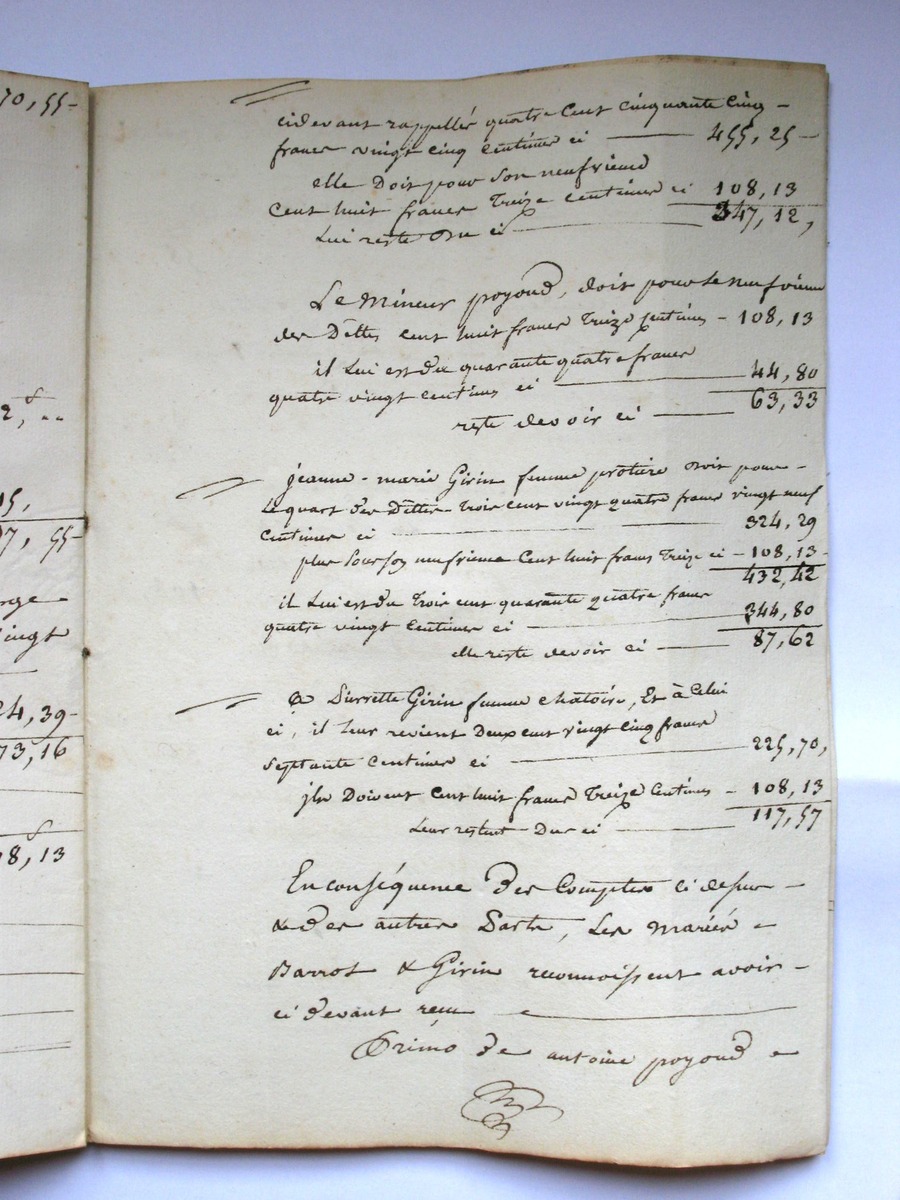 70,55-
2,8..
15,
07, 55-
rge
ingt
24,39-
73,16
08,13
cidevant rappellés quatre Cent cinquante Cinq -
francs vingt cinq Centimes ci 455, 25 -
elle Doit pour son neufvieme
Cent huit francs Treize centimes ci 108,13
Lui reste du ci 347,12,
Le Mineur poyoud, doit pour le neufvieme
des Dettes cent huit francs Treize centimes - 108,13
il Lui est du quarante quatre francs
quatre vingt centimes ci 44,80
reste devoir ci 63,33
jeanne - marie Girin femme protiere doit pour -
Le quart des dettes Trois Cent vingt quatre francs vingt neuf
Centimes ci 324,29
plus pour son neufvieme Cent huit francs Treize ci - 108,13-
432,42
il Lui est du Trois cent quarante quatre francs
quatre vingt Centimes ci 344,80
elle reste devoir ci 87,62
a Pierrette Girin femme chatoire, Et à Celui
ci, il leur revient Deux cent vingt cinq francs
septante Centimes ci 225,70,
jls Doivent Cent huit francs Treize Centimes - 108,13
Leur restent Dus ci 117,57
En conséquence des Comptes ci dessus -
& des autres Parts, Les mariés
Barrot & Girin reconnoissent avoir -
ci devant reçu
Primo de antoine poyoud